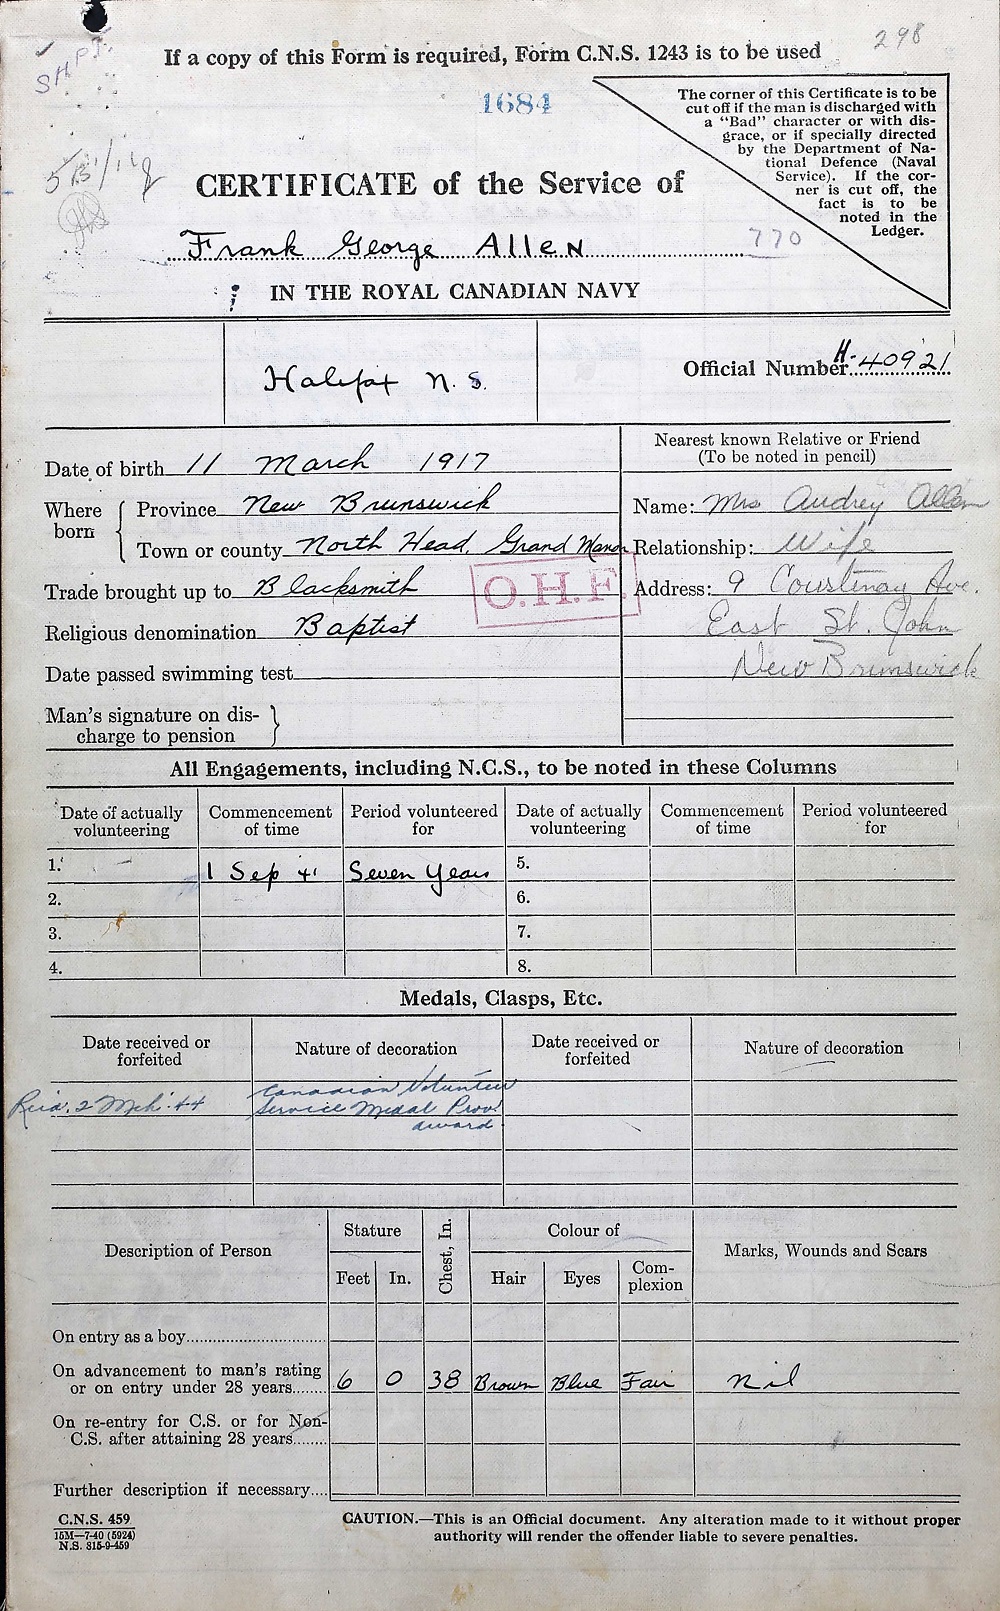 298
If a copy of this Form is required, Form C.N.S. 1243 is to be used
1684
The corner of this Certificate is to be
cut off if the man is discharged with
a "Bad" character or with dis-
grace, or if specially directed
by the Department of Na-
tional Defence (Naval
Service). If the cor-
ner is cut off, the
fact is to be
noted in the
Ledger.
CERTIFICATE of the Service of
Frank George Allen
770
IN THE ROYAL CANADIAN NAVY
Halifax N.S.
Official Number H-40921
Date of birth 11 March 1917
Where born
Province New Brunswick
Town or county North Head, Grand Manan
Trade brought up to Blacksmith
Religious denomination Baptist
O.H.F.
Date passed swimming test
Man's signature on dis-
charge to pension
Nearest known Relative or Friend
(To be noted in pencil)
Name: Mrs Audrey Allen
Relationship: Wife
Address: 9 Courtenay Ave.
East St. John
New Brunswick
All Engagements, including N.C.S., to be noted in these Columns
Date of actually volunteering Commencement of time Period volunteered for Date of actually volunteering Commencement of time Period volunteered for
1. 1 Sep 41 Seven Years 5.
2. 6.
3. 7.
4. 8.
Medals, Clasps, Etc.
Date received or forfeited Nature of decoration Date received or forfeited Nature of decoration
2 Mch. 44 Canadian Volunteer
Service Medal Prov.
award.
Description of Person Stature Chest, In. Colour of Marks, Wounds and Scars
Feet In. Hair Eyes Com-
plexion
On entry as a boy
On advancement to man's rating
or on entry under 28 years 6 0 38 Brown Blue Fair Nil
On re-entry for C.S. or for Non-
C.S. after attaining 28 years
Further description if necessary
C.N.S. 459
15M—7-40 (5924)
N.S. 815-9-459
CAUTION.—This is an Official document. Any alteration made to it without proper
authority will render the offender liable to severe penalties.